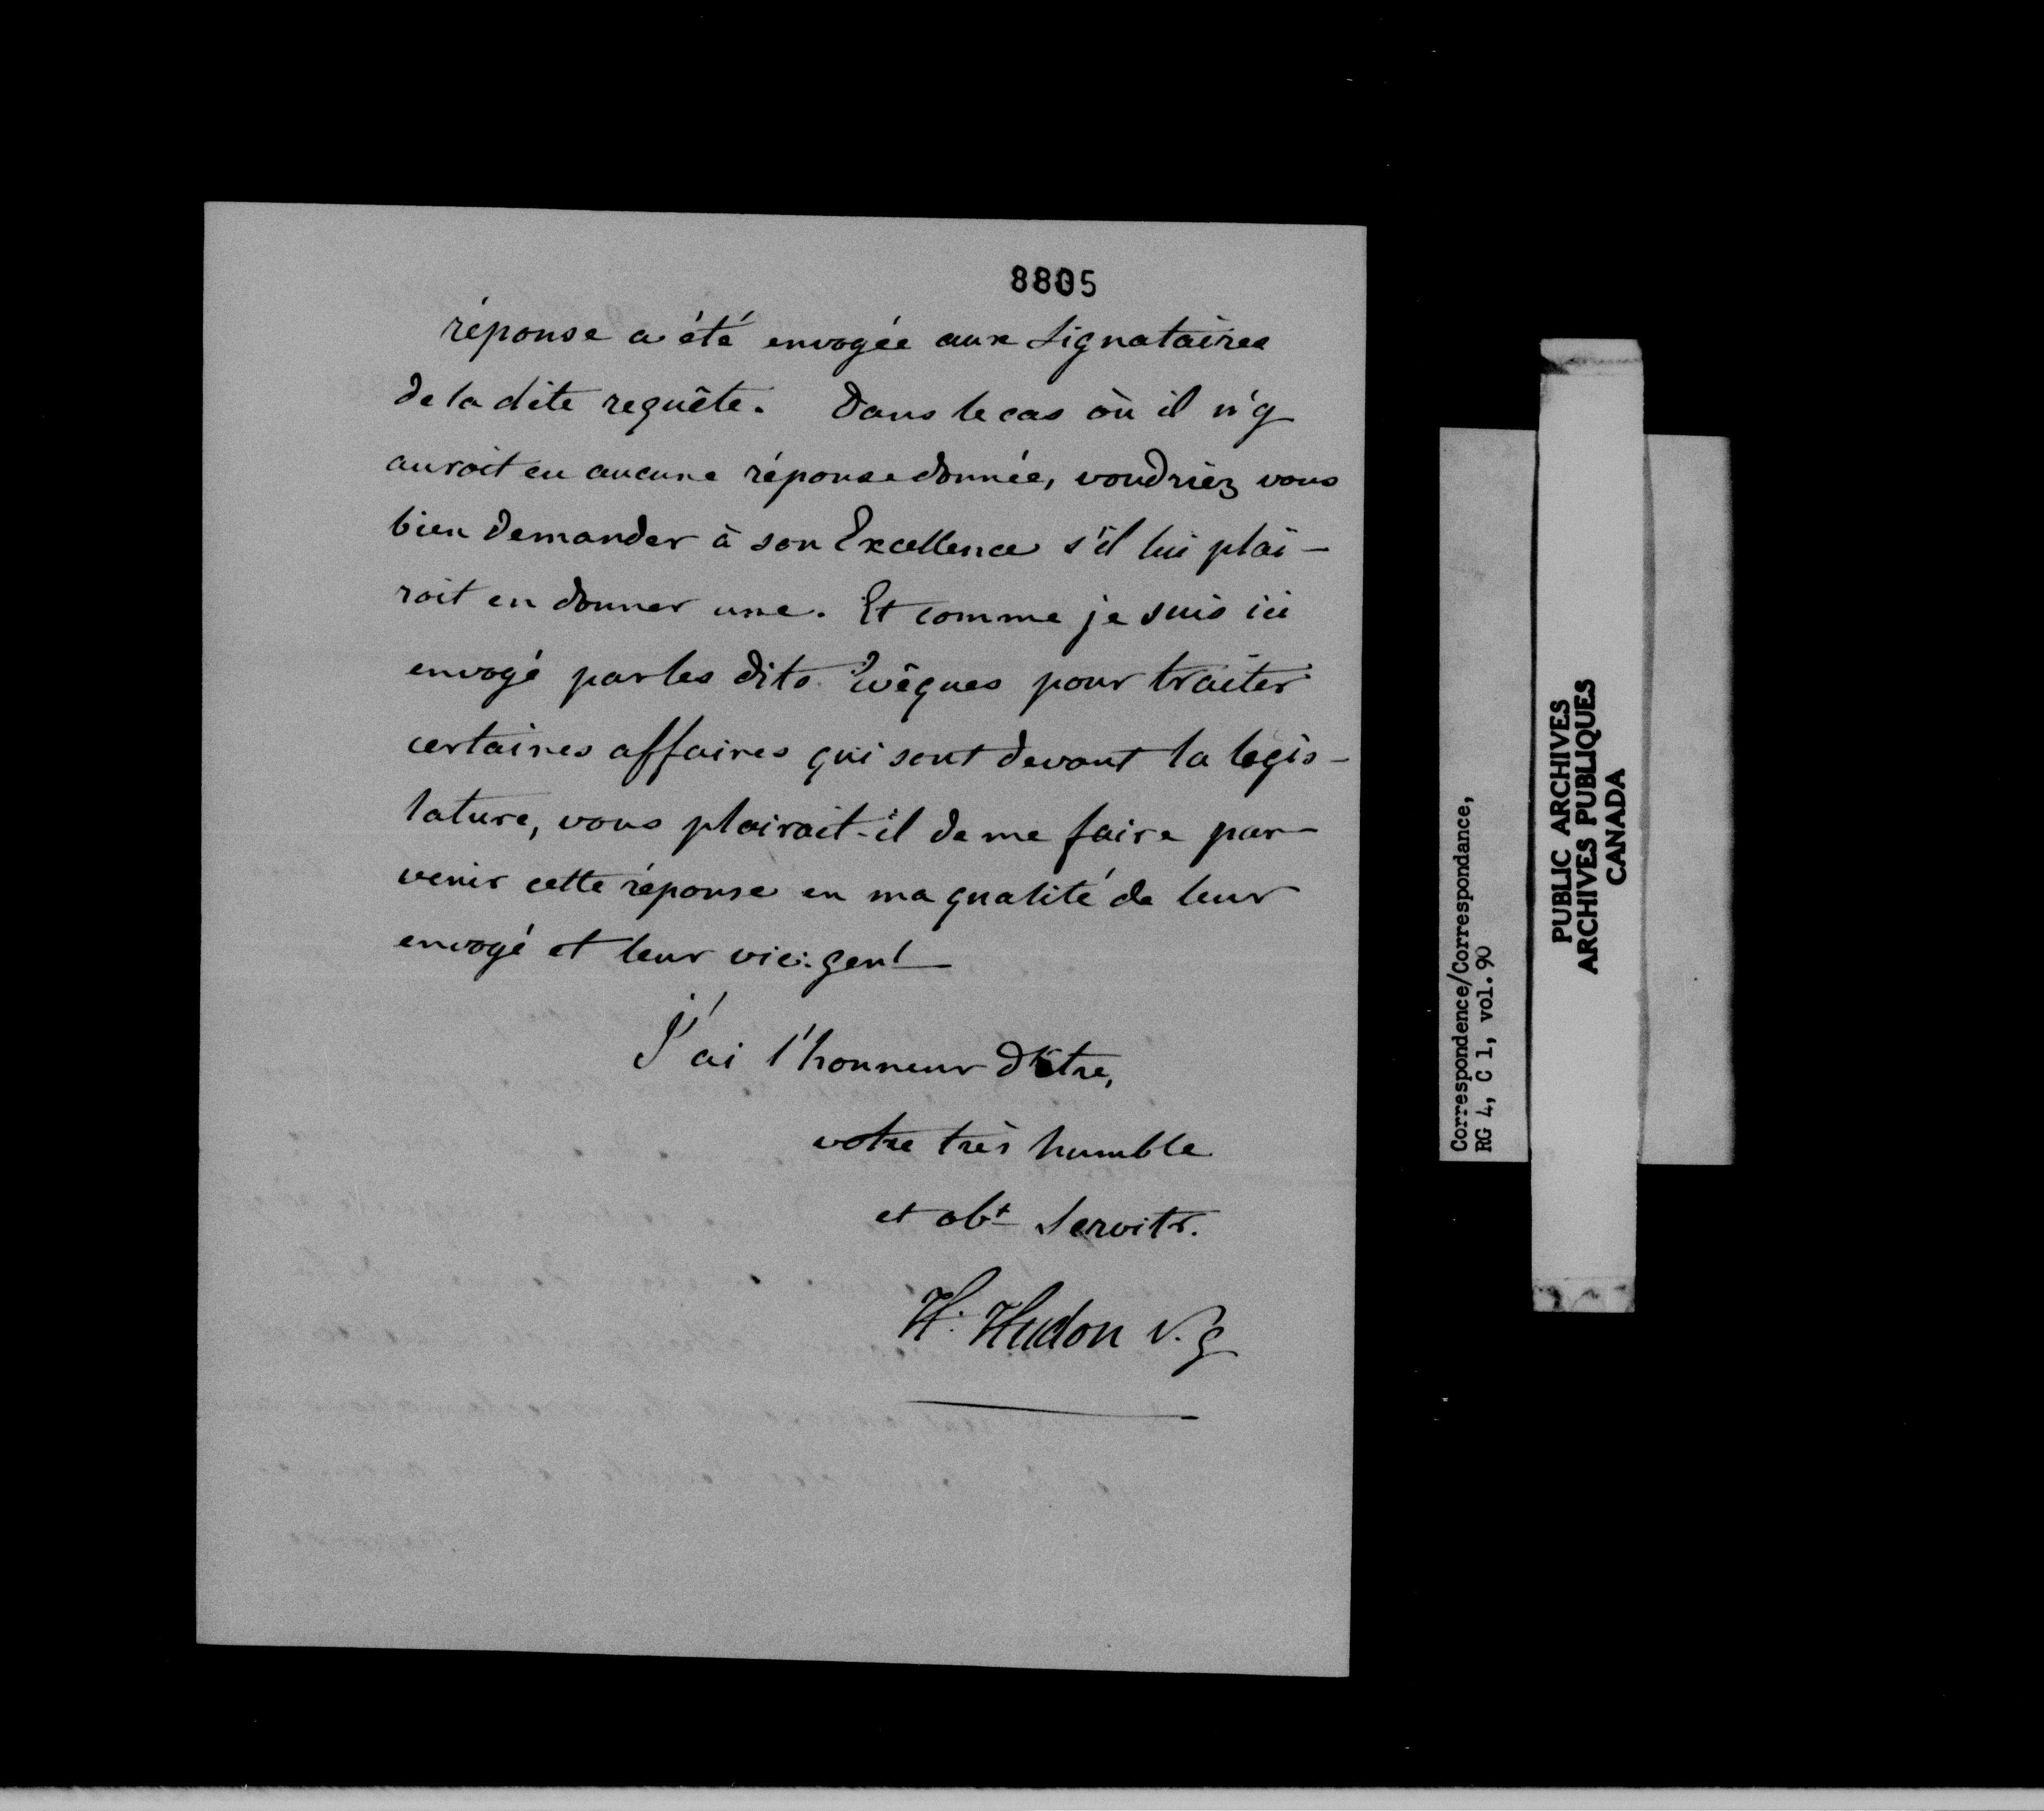 8805
réponse a été envoyée aux Signataires
de la dite requête. Dans le cas où il n'y
auroit eu aucune réponse donnée, voudriez vous
bien demander à son Excellence s'il lui plai-
roit en donner une. Et comme je suis ici
envoyé par les dits Evêques pour traiter
certaines affaires qui sont devant la légis-
lature, vous plairait-il de me faire par-
venir cette réponse en ma qualité de leur
envoyé et leur vic: gen!
J'ai l'honneur d'être,
votre très humble
et obt Servitr.
H. Hudon v. g
Correspondence/Correspondance,
RG 4, C 1, vol. 90
PUBLIC ARCHIVES
ARCHIVES PUBLIQUES
CANADA